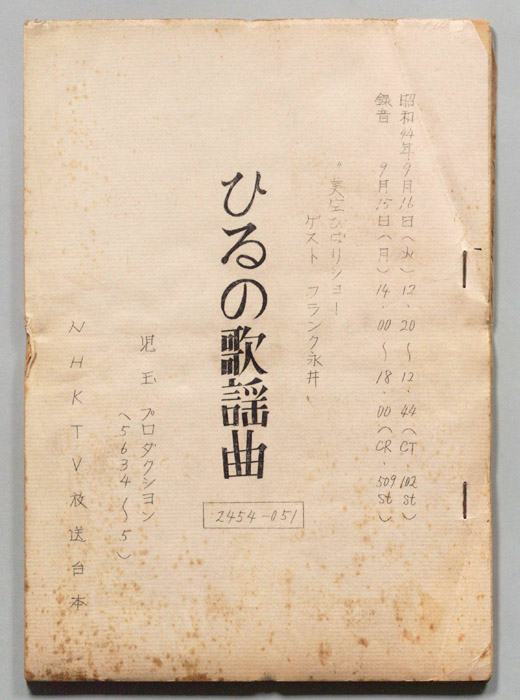 昭和44年9月16日(火) 12.20〜12.44(CT-102st)
録音 9月15日(月) 14.00〜18.00(CR-509st)
"美空ひばりショー
ゲスト フランク永井"
ひるの歌謡曲
2454-051
児玉プロダクション
(5634〜5)
NHKTV放送台本